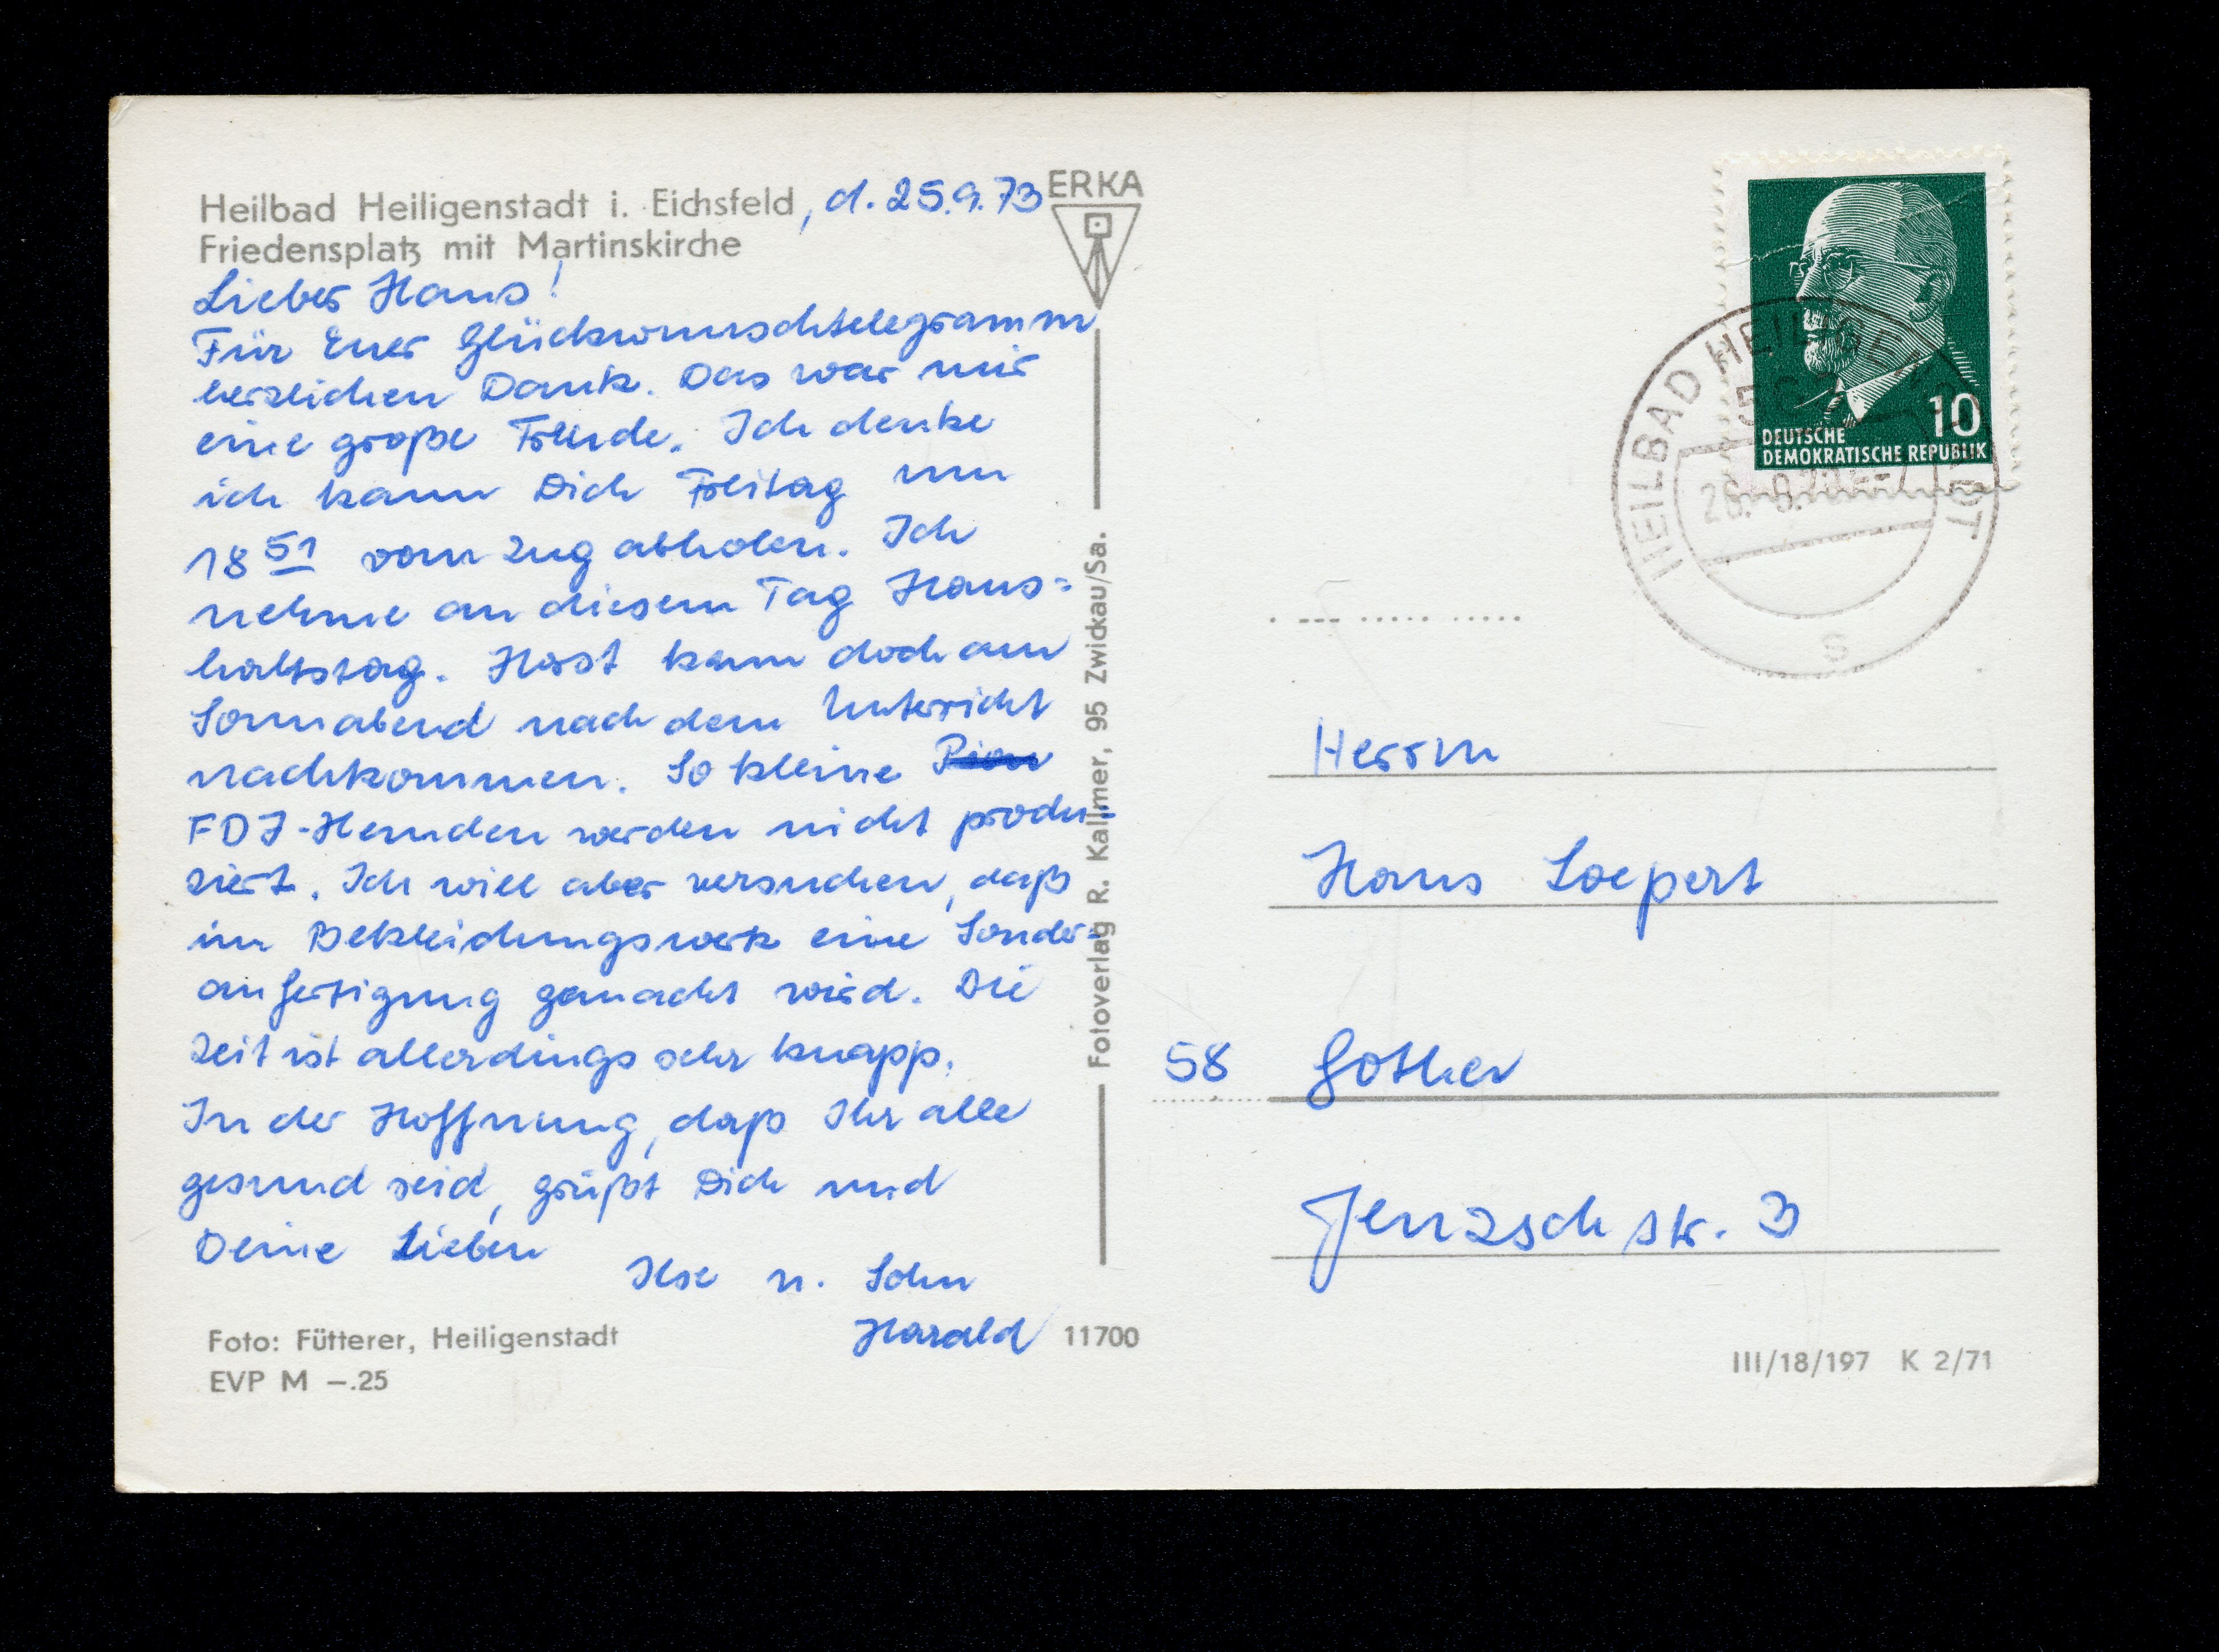 Heilbad Heiligenstadt i. Eichsfeld, d. 25.9.73
Friedensplatz mit Martinskirche
Lieber Hans!
Für Euer Glückwunschtelegramm
herzlichen Dank. Das war mir
eine große Freude. Ich denke
ich kann Dich Freitag um
18 51 vom Zug abholen. Ich
nehme an diesem Tag Haus=
haltstag. Horst kann doch am
Sonnabend nach dem Unterricht
nachkommen. So kleine Pion
FDJ-Hemden werden nicht produ-
ziert. Ich will aber versuchen, daß
im Bekleidungswerk eine Sonder=
anfertigung gemacht wird. Die
Zeit ist allerdings sehr knapp.
In der Hoffnung, daß Ihr alle
gesund seid, grüßt Dich und
Deine Lieben
Ilse u. Sohn
Harald
Foto: Fütterer, Heiligenstadt
EVP M –.25
ERKA
Fotoverlag R. Kallmer, 95 Zwickau/Sa.
11700
10
DEUTSCHE
DEMOKRATISCHE REPUBLIK
HEILBAD HEILIGENSTADT
S
Herrn
Hans Loepert
58 Gotha
Jenzschstr. 3
III/18/197 K 2/71